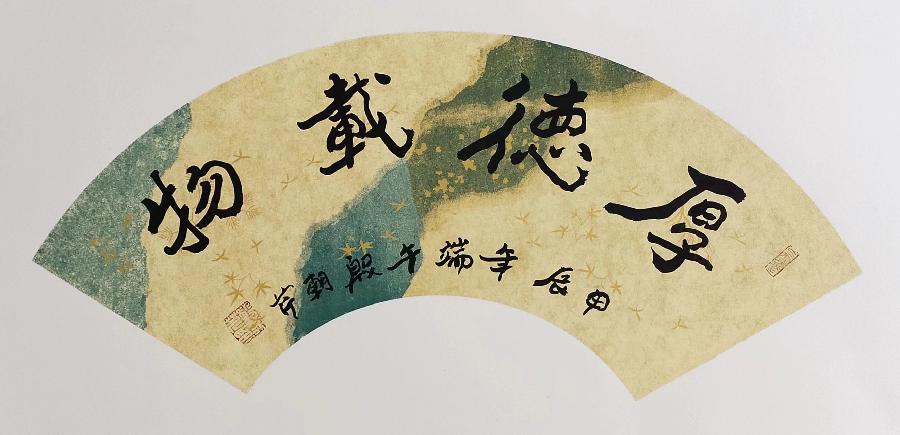 厚德載物
甲辰年端午殷朝